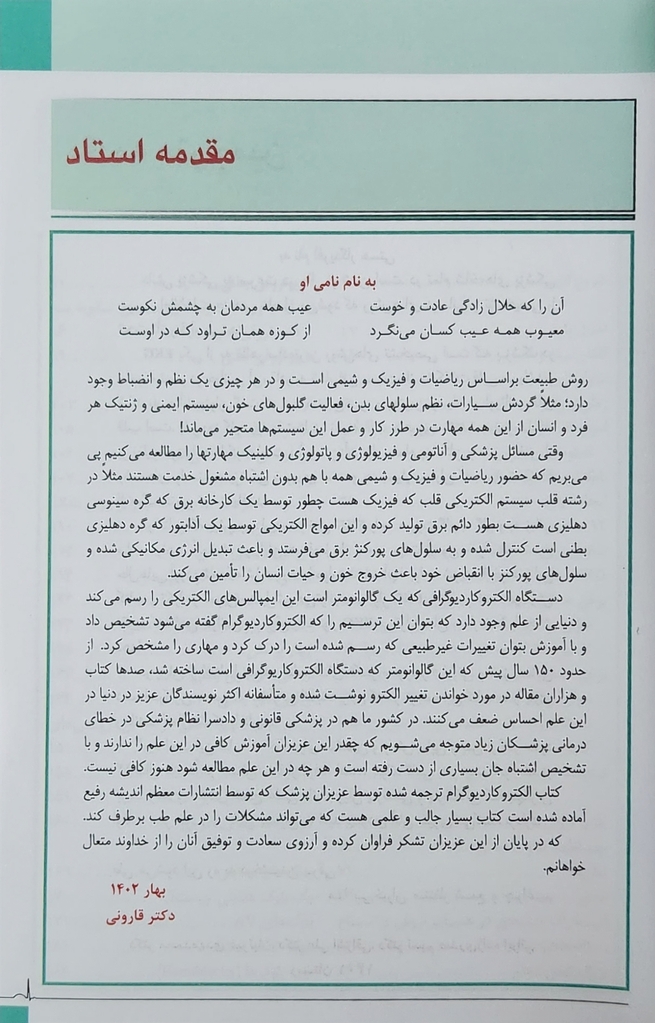 مقدمه استاد
به نام نامی او
آن را که حلال زادگی عادت و خوست عیب همه مردمان به چشمش نکوست
معیوب همه عیب کسان می‌نگرد از کوزه همان تراود که در اوست
روش طبیعت براساس ریاضیات و فیزیک و شیمی است و در هر چیزی یک نظم و انضباط وجود
دارد؛ مثلاً گردش سیارات، نظم سلولهای بدن، فعالیت گلبول‌های خون، سیستم ایمنی و ژنتیک هر
فرد و انسان از این همه مهارت در طرز کار و عمل این سیستم‌ها متحیر می‌ماند!
وقتی مسائل پزشکی و آناتومی و فیزیولوژی و پاتولوژی و کلینیک مهارتها را مطالعه می‌کنیم پی
می‌بریم که حضور ریاضیات و فیزیک و شیمی همه با هم بدون اشتباه مشغول خدمت هستند مثلاً در
رشته قلب سیستم الکتریکی قلب که فیزیک هست چطور توسط یک کارخانه برق که گره سینوسی
دهلیزی هست بطور دائم برق تولید کرده و این امواج الکتریکی توسط یک آدابتور که گره دهلیزی
بطنی است کنترل شده و به سلول‌های پورکنژ برق می‌فرستد و باعث تبدیل انرژی مکانیکی شده و
سلول‌های پورکنز با انقباض خود باعث خروج خون و حیات انسان را تأمین می‌کند.
دستگاه الکتروکاردیوگرافی که یک گالوانومتر است این ایمپالس‌های الکتریکی را رسم می‌کند
و دنیایی از علم وجود دارد که بتوان این ترسیم را که الکتروکاردیوگرام گفته می‌شود تشخیص داد
و با آموزش بتوان تغییرات غیرطبیعی که رسم شده است را درک کرد و مهاری را مشخص کرد. از
حدود ۱۵۰ سال پیش که این گالوانومتر که دستگاه الکتروکاریوگرافی است ساخته شد، صدها کتاب
و هزاران مقاله در مورد خواندن تغییر الکترو نوشت شده و متأسفانه اکثر نویسندگان عزیز در دنیا در
این علم احساس ضعف می‌کنند. در کشور ما هم در پزشکی قانونی و دادسرا نظام پزشکی در خطای
درمانی پزشکان زیاد متوجه می‌شویم که چقدر این عزیزان آموزش کافی در این علم را ندارند و با
تشخیص اشتباه جان بسیاری از دست رفته است و هر چه در این علم مطالعه شود هنوز کافی نیست.
کتاب الکتروکاردیوگرام ترجمه شده توسط عزیزان پزشک که توسط انتشارات معظم اندیشه رفیع
آماده شده است کتاب بسیار جالب و علمی هست که می‌تواند مشکلات را در علم طب برطرف کند.
که در پایان از این عزیزان تشکر فراوان کرده و آرزوی سعادت و توفیق آنان را از خداوند متعال
خواهانم.
بهار ۱۴۰۲
دکتر قارونی